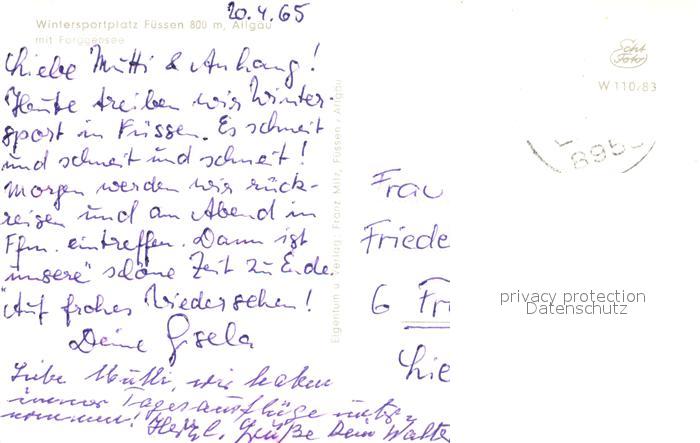 20.4.65
Wintersportplatz Füssen 800 m, Allgäu
mit Forggensee
Liebe Mutti & Anhang!
Heute treiben wir Winter-
sport in Füssen. Es schneit
und schneit und schneit!
Morgen werden wir rück-
reisen und am Abend in
Ffm. eintreffen. Dann ist
unsere schöne Zeit zu Ende.
Auf frohes Wiedersehen!
Deine Gisela
Liebe Mutti, wir haben
immer Tagesausflüge unter-
nommen! Herzl. Grüße Dein Walter
Eigentum u. Verlag: Franz Milz, Füssen / Allgäu
Echt
Foto
W 110/83
895
Frau
Friede
6 Fr
privacy protection
Datenschutz